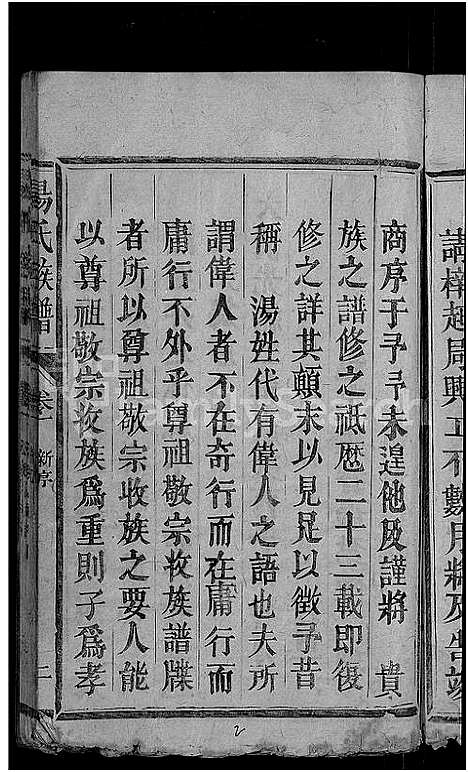 請梓越局興工不數月將及告竣
商序于予予未遑他及謹將　貴
族之譜修之祗歷二十三載即復
修之詳其顛末以見足以徵予昔
稱　湯姓代有偉人之語也夫所
謂偉人者不在奇行而在庸行而
庸行不外乎尊祖敬宗收族譜牒
者所以尊祖敬宗收族之要人能
以尊祖敬宗收族爲重則子爲孝
湯氏族譜　卷一　新序　二
2